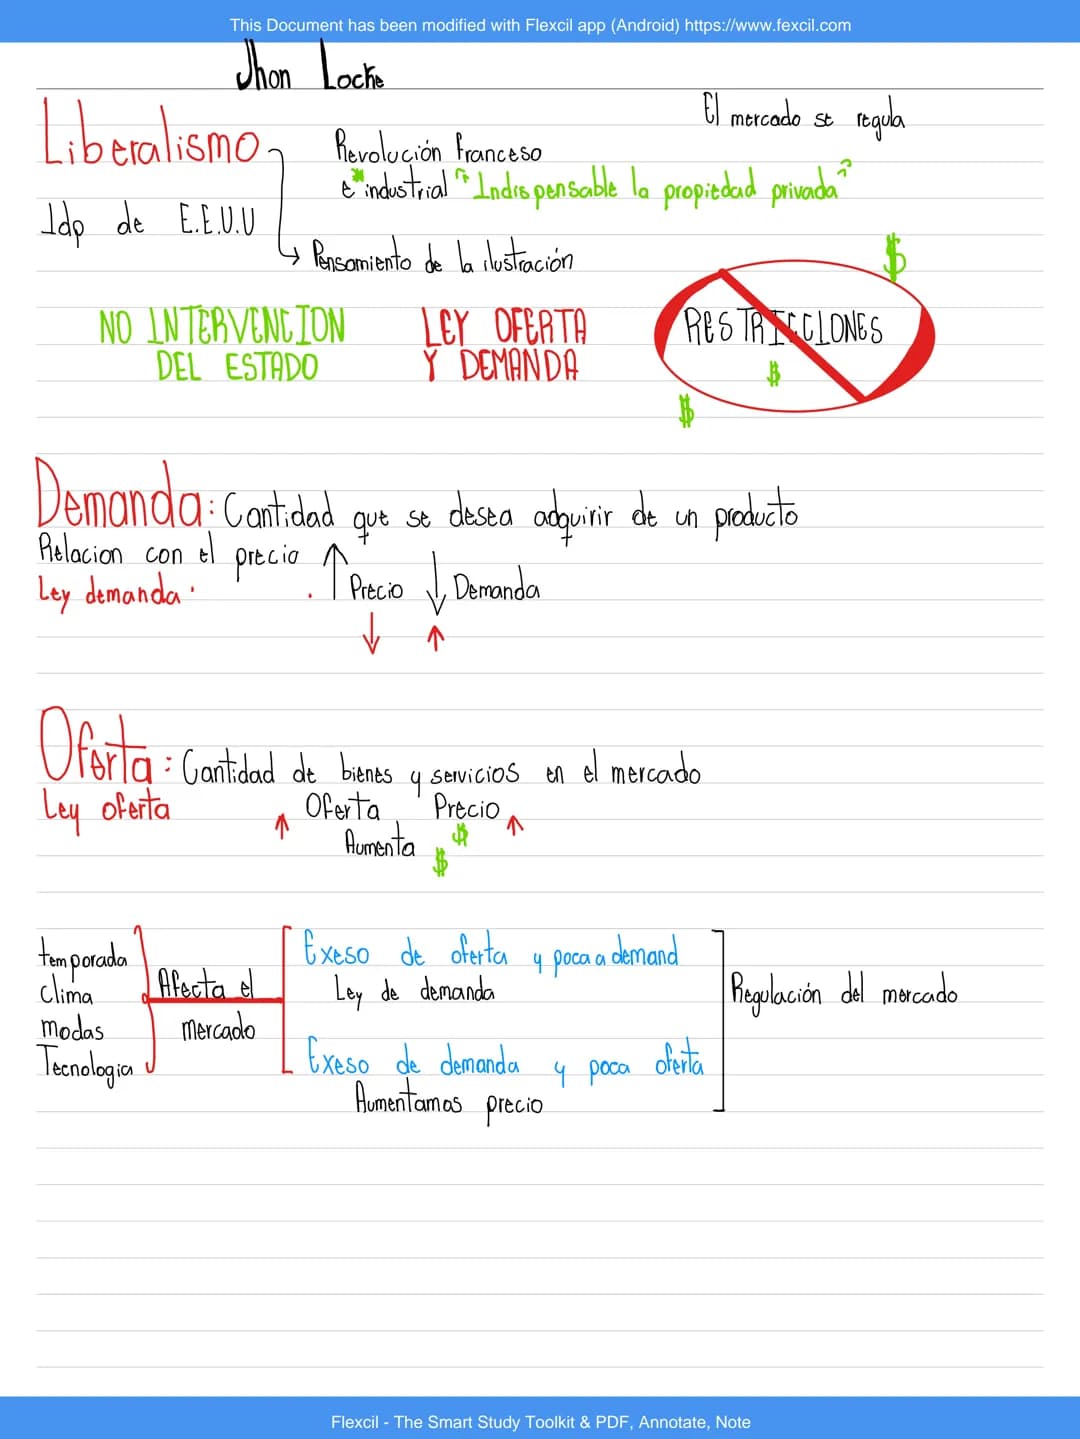 This Document has been modified with Flexcil app (Android) https://www.fexcil.com
Jhon Locke
El mercado se regula
Liberalismo
Revolución Franceso
e industrial "Indispensable la propiedad privada"
Idp de E.E.U.U
Pensamiento de la ilustración
NO INTERVENCION
DEL ESTADO
LEY OFERTA
Y DEMANDA
RESTRICCIONES
$
$
$
Demanda: Cantidad que se desea adquirir de un producto
Relacion con el precio
Ley demanda
↑ Precio ↓ Demanda
↓ ↑
Oferta: Cantidad de bienes y servicios en el mercado
Ley oferta
↑ Oferta Precio ↑
Aumenta $ $
temporada
clima
modas
Tecnologia
Afecta el
mercado
Exeso de oferta y poca a demand
Ley de demanda
Exeso de demanda y poca oferta
Aumentamos precio
Regulación del mercado
Flexcil - The Smart Study Toolkit & PDF, Annotate, Note